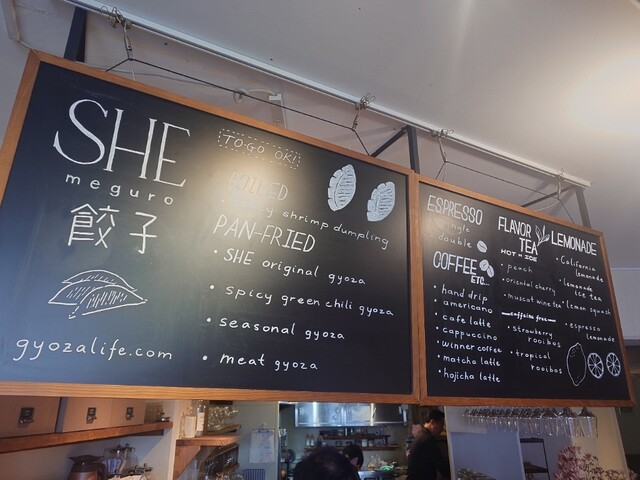 SHE
meguro
餃子
gyozalife.com
TO-GO OK!
BOILED
shrimp dumpling
PAN-FRIED
• SHE original gyoza
• spicy green chili gyoza
• seasonal gyoza
• meat gyoza
ESPRESSO
single
double
COFFEE
ETC...
• hand drip
• americano
• cafe latte
• cappuccino
• winner coffee
• matcha latte
• hojicha latte
FLAVOR
TEA
HOT or ICE
• peach
• oriental cherry
• muscat wine tea
caffeine free
• strawberry
rooibos
• tropical
rooibos
LEMONADE
• California
lemonade
• lemonade
ice tea
• lemon squash
• espresso
lemonade